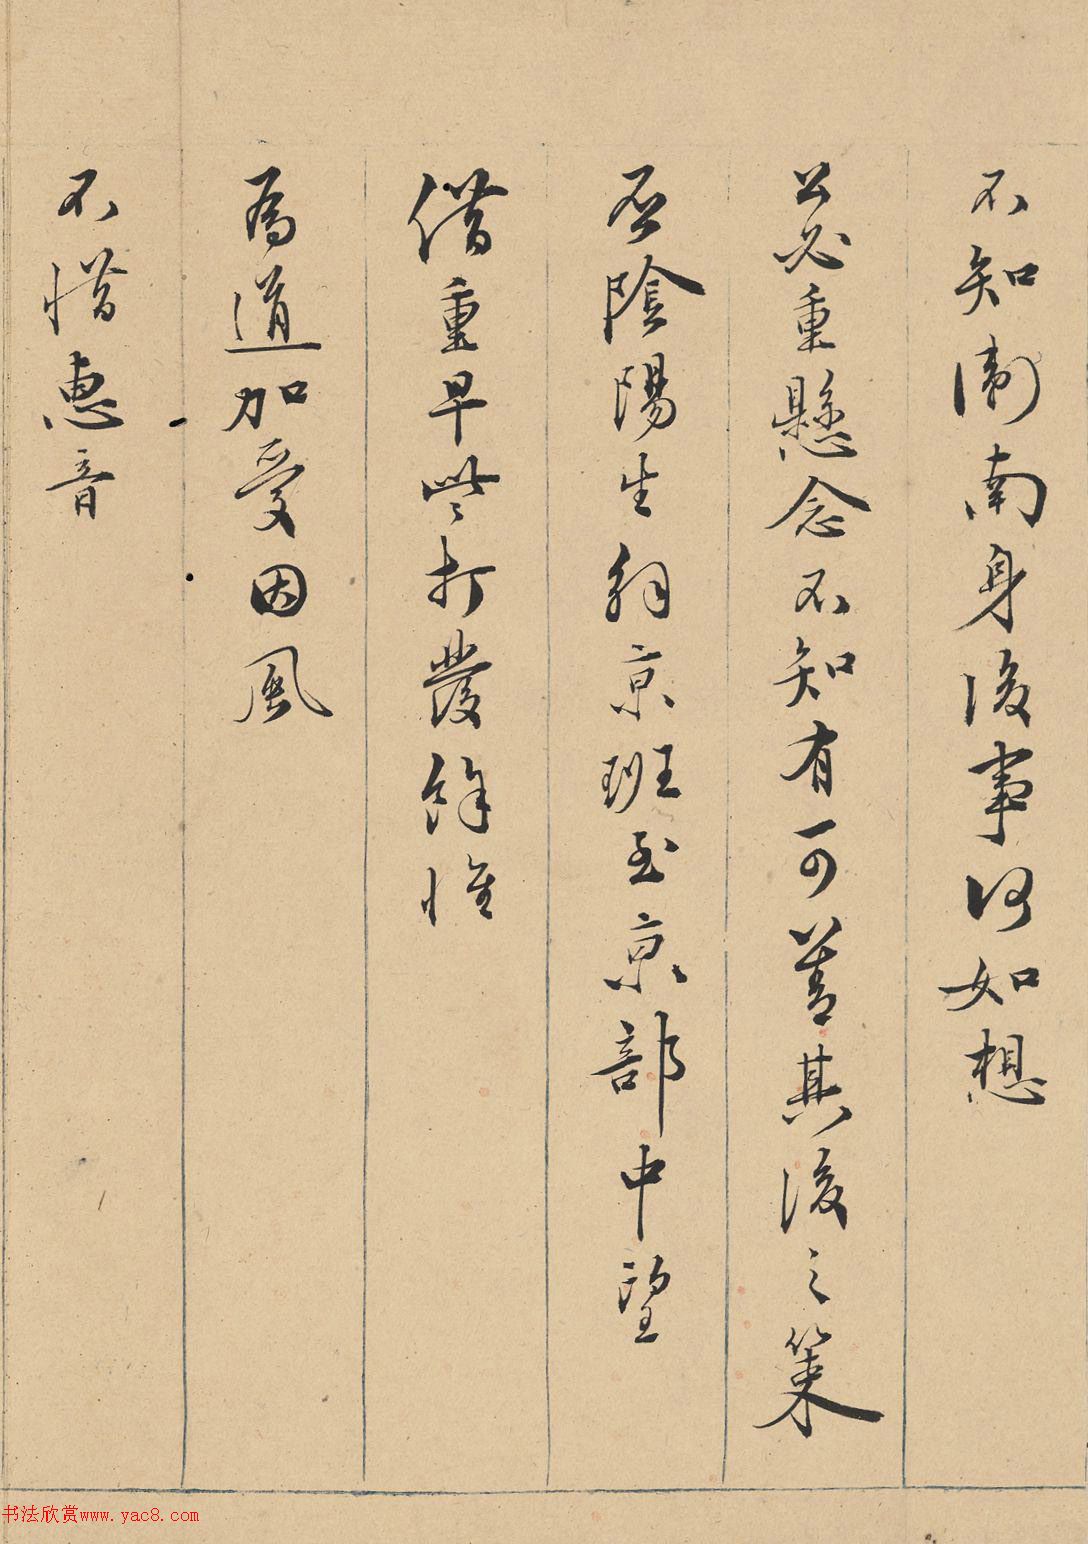 不知衛南身後事何如想
公必重懸念不知有可善其後之策
否陰陽生利京班至京部中望
借重早些打發餘惟
為道加愛因風
不惜惠音
书法欣赏www.yac8.com